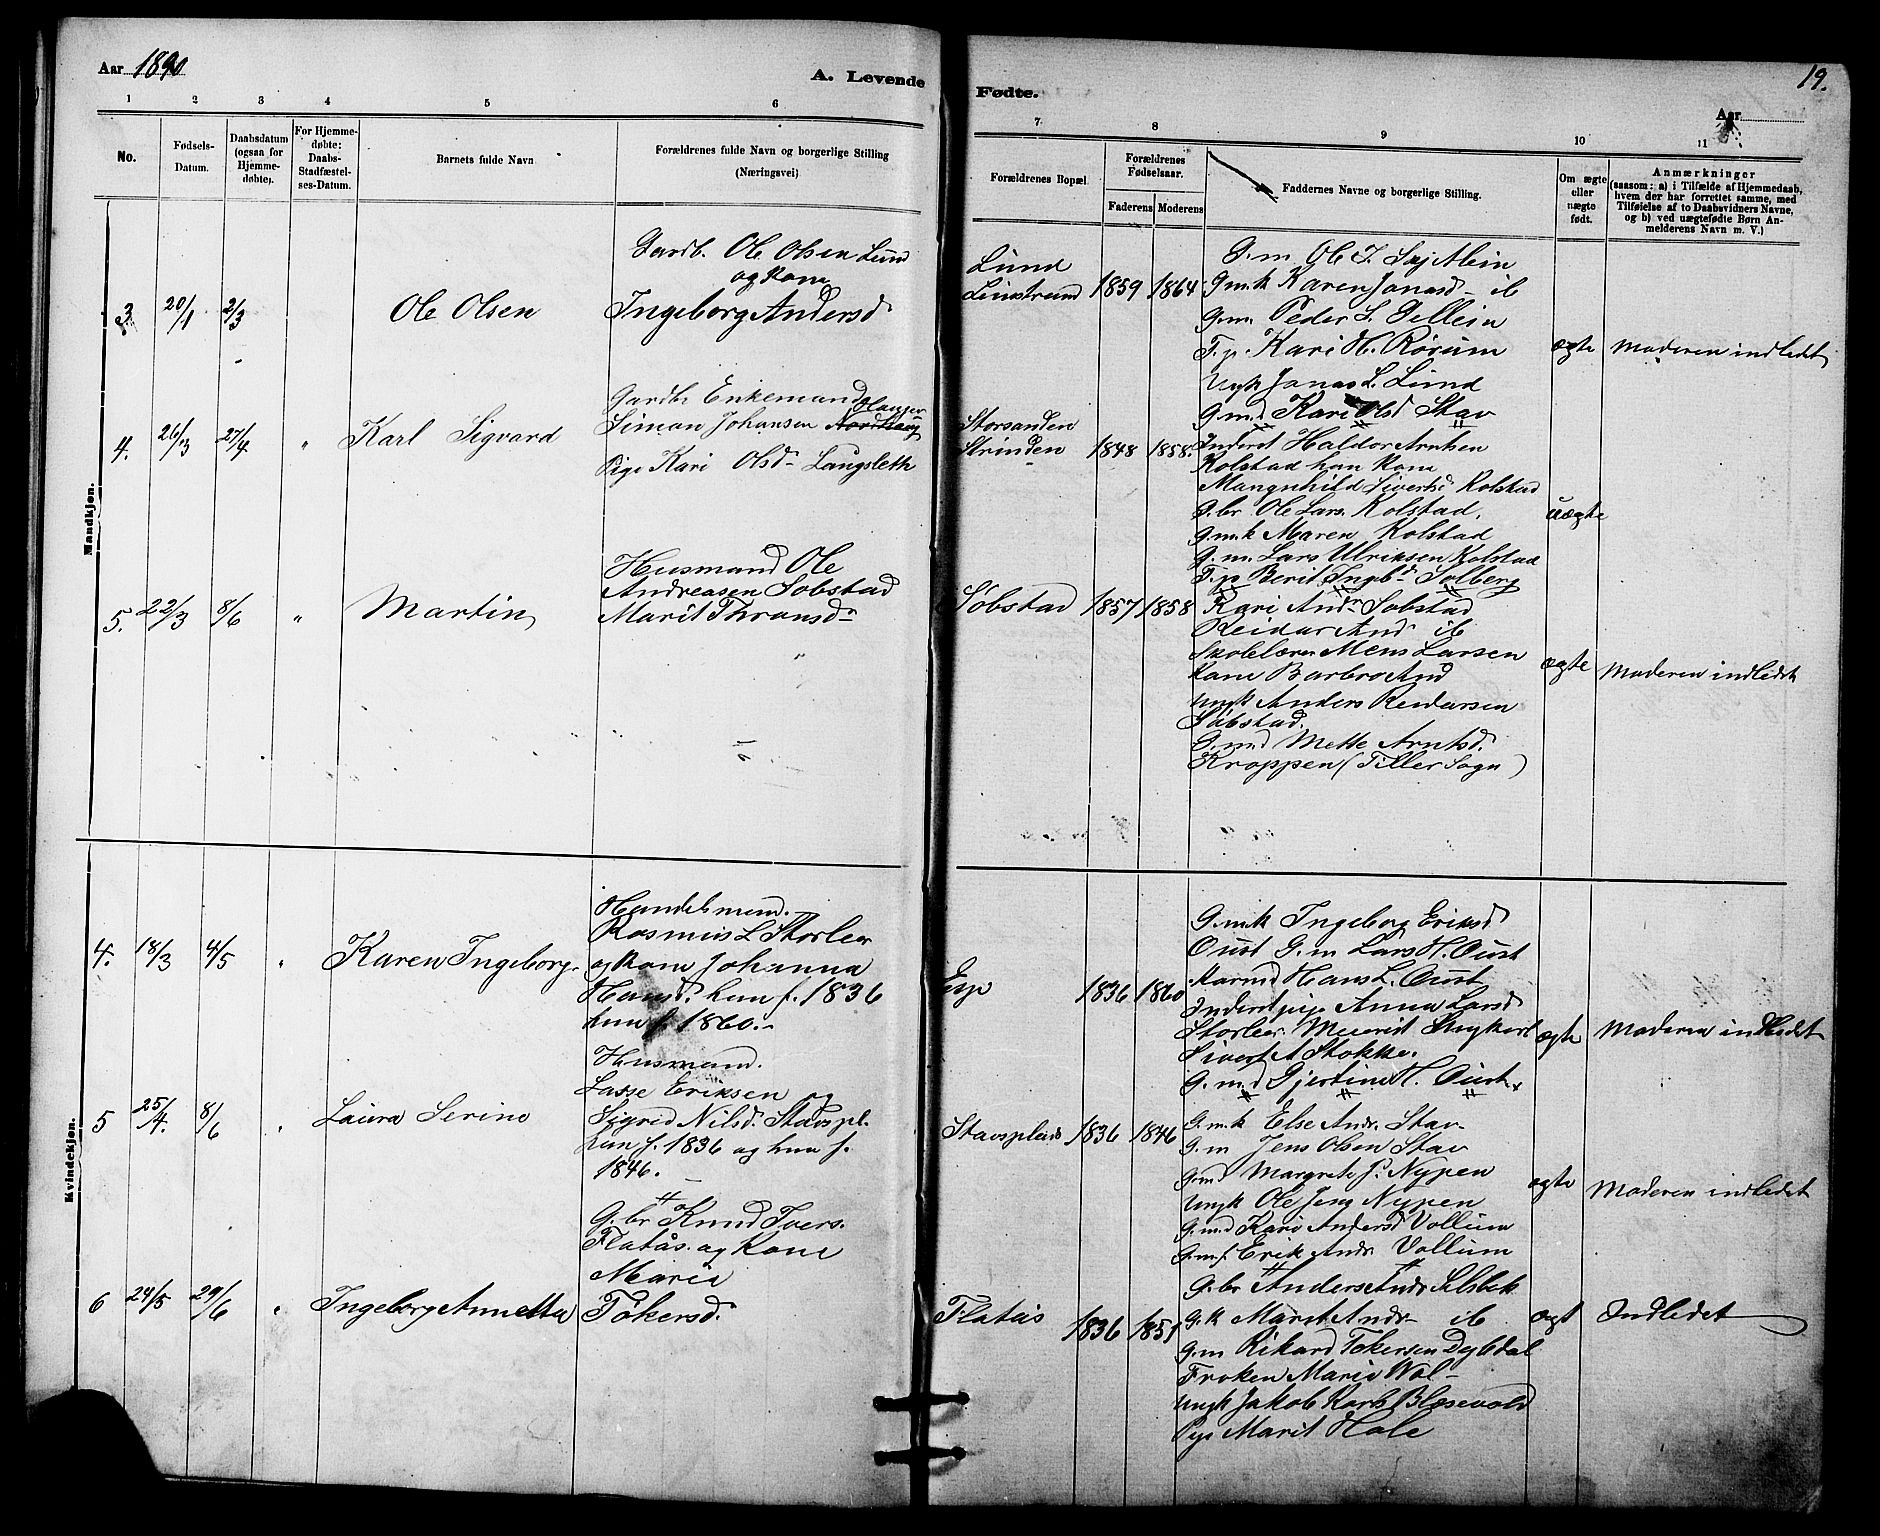 Aar 1890
A. Levende
Fødte.
19.
Aar
1 2 3 4 5 6 7 8 9 10 11
No.
Fødsels-
Datum.
Daabsdatum
(ogsaa for
Hjemme-
døbte).
For Hjemme-
døbte:
Daabs-
Stadfæstel-
ses-Datum.
Barnets fulde Navn
Forældrenes fulde Navn og borgerlige Stilling
(Næringsvei)
Forældrenes Bopæl.
Forældrenes
Fødselsaar.
Faderens Moderens
Faddernes Navne og borgerlige Stilling.
Om ægte
eller
uægte
født.
Anmærkninger
(saasom: a) i Tilfælde af Hjemmedaab,
hvem der har forrettet samme, med
Tilføielse af to Daabsvidners Navne,
og b) ved uægtefødte Børn An-
melderens Navn m. V.)
Mandkjøn.
3. 20/1 2/3 Ole Olsen
Gardb. Ole Olsen Lund
og Kone
Ingeborg Andersd
Lund
Leinstrand 1859 1864
G.m. Ole J. Skjetlein
G.m.k Karen Jonasd ib
G.m. Peder L. Gellein
T.p. Kari H. Rørum
Ungk Jonas L. Lund
G.m.d Kari Olsd Stav
ægte Moderen indledet
4. 26/3 27/4 " Karl Sigvard
Gardbr Enkemand
Simon Johansen Nordhaug
Pige Kari Olsd Langsleth
Storsanden
Strinden 1848 1858.
Inderst Haldor Arntsen
Kolstad han Kone
Mangnhild Sivertsd Kolstad
G.br Ole Lars. Kolstad,
G.m.k Maren Kolstad
G.m. Lars Ulriksen Kolstad
T.p Berit Ingbd Solberg
uægte
5. 22/3 8/6 " Martin
Husmand Ole
Andreasen Sobstad
Marit Thronsd
Søbstad 1857 1858
Kari Andr Sobstad
Reidar And ib
Skolelærer Mens Larsen
Kone Barbro And
Ungk Anders Reidarsen
Søbstad.
G.m.d Mette Arntsd.
Kroppen (Tiller Sogn)
ægte Moderen indledet
Kvindekjøn.
4. 18/3 4/5 " Karen Ingeborg.
Handelsmand.
Rasmus L Storler
og Kone Johanna
Hansd. han f. 1836
hun f. 1860.
Esp 1836 1860
G.mk Ingeborg Eriksd
Oust G.m Lars H. Oust
Hans L. Oust
Inderstpige Anna Larsd
Storler.
Sivert A Stokke.
G.m.d Gjertine H. Oust
ægte Moderen indledet
5 25/4. 8/6 " Laura Serine
Husmand.
Lasse Eriksen og
Sigrid Nilsd. Stavspl.
han f. 1836 og hun f.
1846.
Stavsplads 1836 1846
G.m.k Else Andr. Stav
G.m Jens Olsen Stav
G.md Margrete J. Nypen
Ungk Ole Jens Nypen
G.m.d Kari Andersd Vollum
G.m.f. Erik Andr Vollum
ægte Moderen indledet
6 24/5 29/6 " Ingeborg Annetta
G.br Knud Ivers.
Flatås. og Kone
Maria
Tøkersd.
Flatås 1836 1851
G.br Anders Andr Selsbek
G.k Marit Andr ib
G.m Rikard Tøkersen Dybdal
Frøken Marie Wol
Ungk Jakob Karls Blæsevold
Pige Marit Hole
ægt Indledet